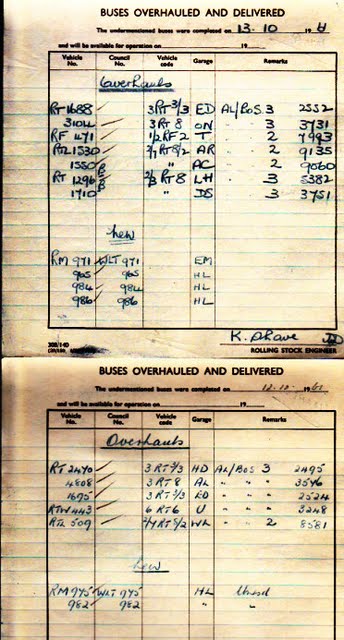 BUSES OVERHAULED AND DELIVERED
The undermentioned buses were completed on 13.10 19
and will be available for operation on 19
Vehicle No. Council No. Vehicle code Garage Remarks
Overhauls
RT 1688 3RT3/3 ED AL/BOS 3 2552
3104 3 RT 8 ON " " 3 3731
RF 471 1/2 RF 2 T " " 2 7993
RTL 1530 2/7 RT8/2 AR " " 2 9135
1550 " AC " " 2 9060
RT 1296 2/3 RT 8 LH " " 3 5382
1710 " DS 3 3751
New
RM 971 WLT 971 EM
965 965 HL
984 984 HL
986 986 HL
K. Shave
ROLLING STOCK ENGINEER
BUSES OVERHAULED AND DELIVERED
The undermentioned buses were completed on 12.10 1961
and will be available for operation on 19
Vehicle No. Council No. Vehicle code Garage Remarks
Overhauls
RT 2470 3 RT 3/3 HD AL/BOS 3 2495
4808 3 RT 8 AL " " " 3546
1695 3 RT 3/3 ED " " " 2524
RTW 443 6 RT 6 U " " " 3248
RTL 509 2/7 RT 8/2 WL " " 2 8581
New
RM 975 WLT 975 HL Unused
982 982 " "